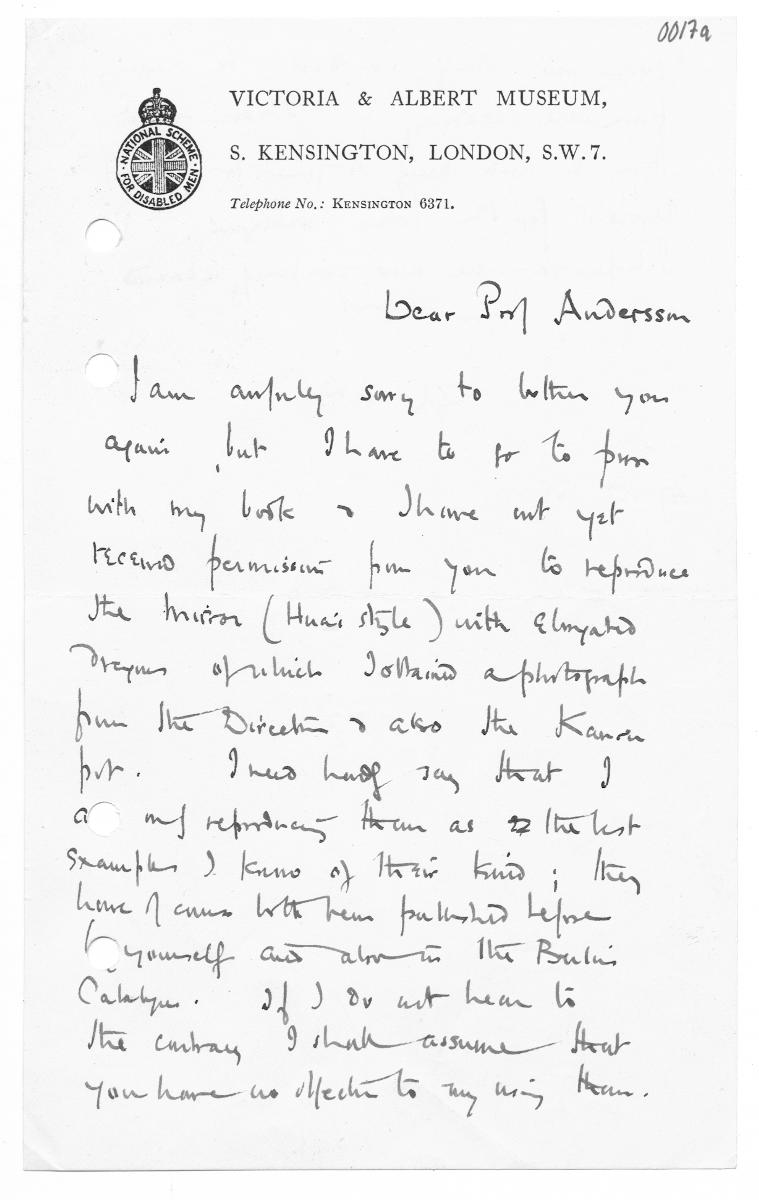 0017a
VICTORIA & ALBERT MUSEUM,
S. KENSINGTON, LONDON, S.W.7.
Telephone No.: KENSINGTON 6371.
NATIONAL SCHEME
FOR DISABLED MEN
Dear Prof Andersson
I am awfully sorry to bother you
again, but I have to go to press
with my book & I have not yet
received permission from you to reproduce
the mirror (Huai style) with elongated
Dragons of which I obtained a photograph
from the Director & also the Kansu
pot. I need hardly say that I
a only reproducing them as the best
examples I know of their kind; they
have of course both been published before
by yourself and also in the Berlin
Catalogue. If I do not hear to
the contrary I shall assume that
you have no objection to my using them.